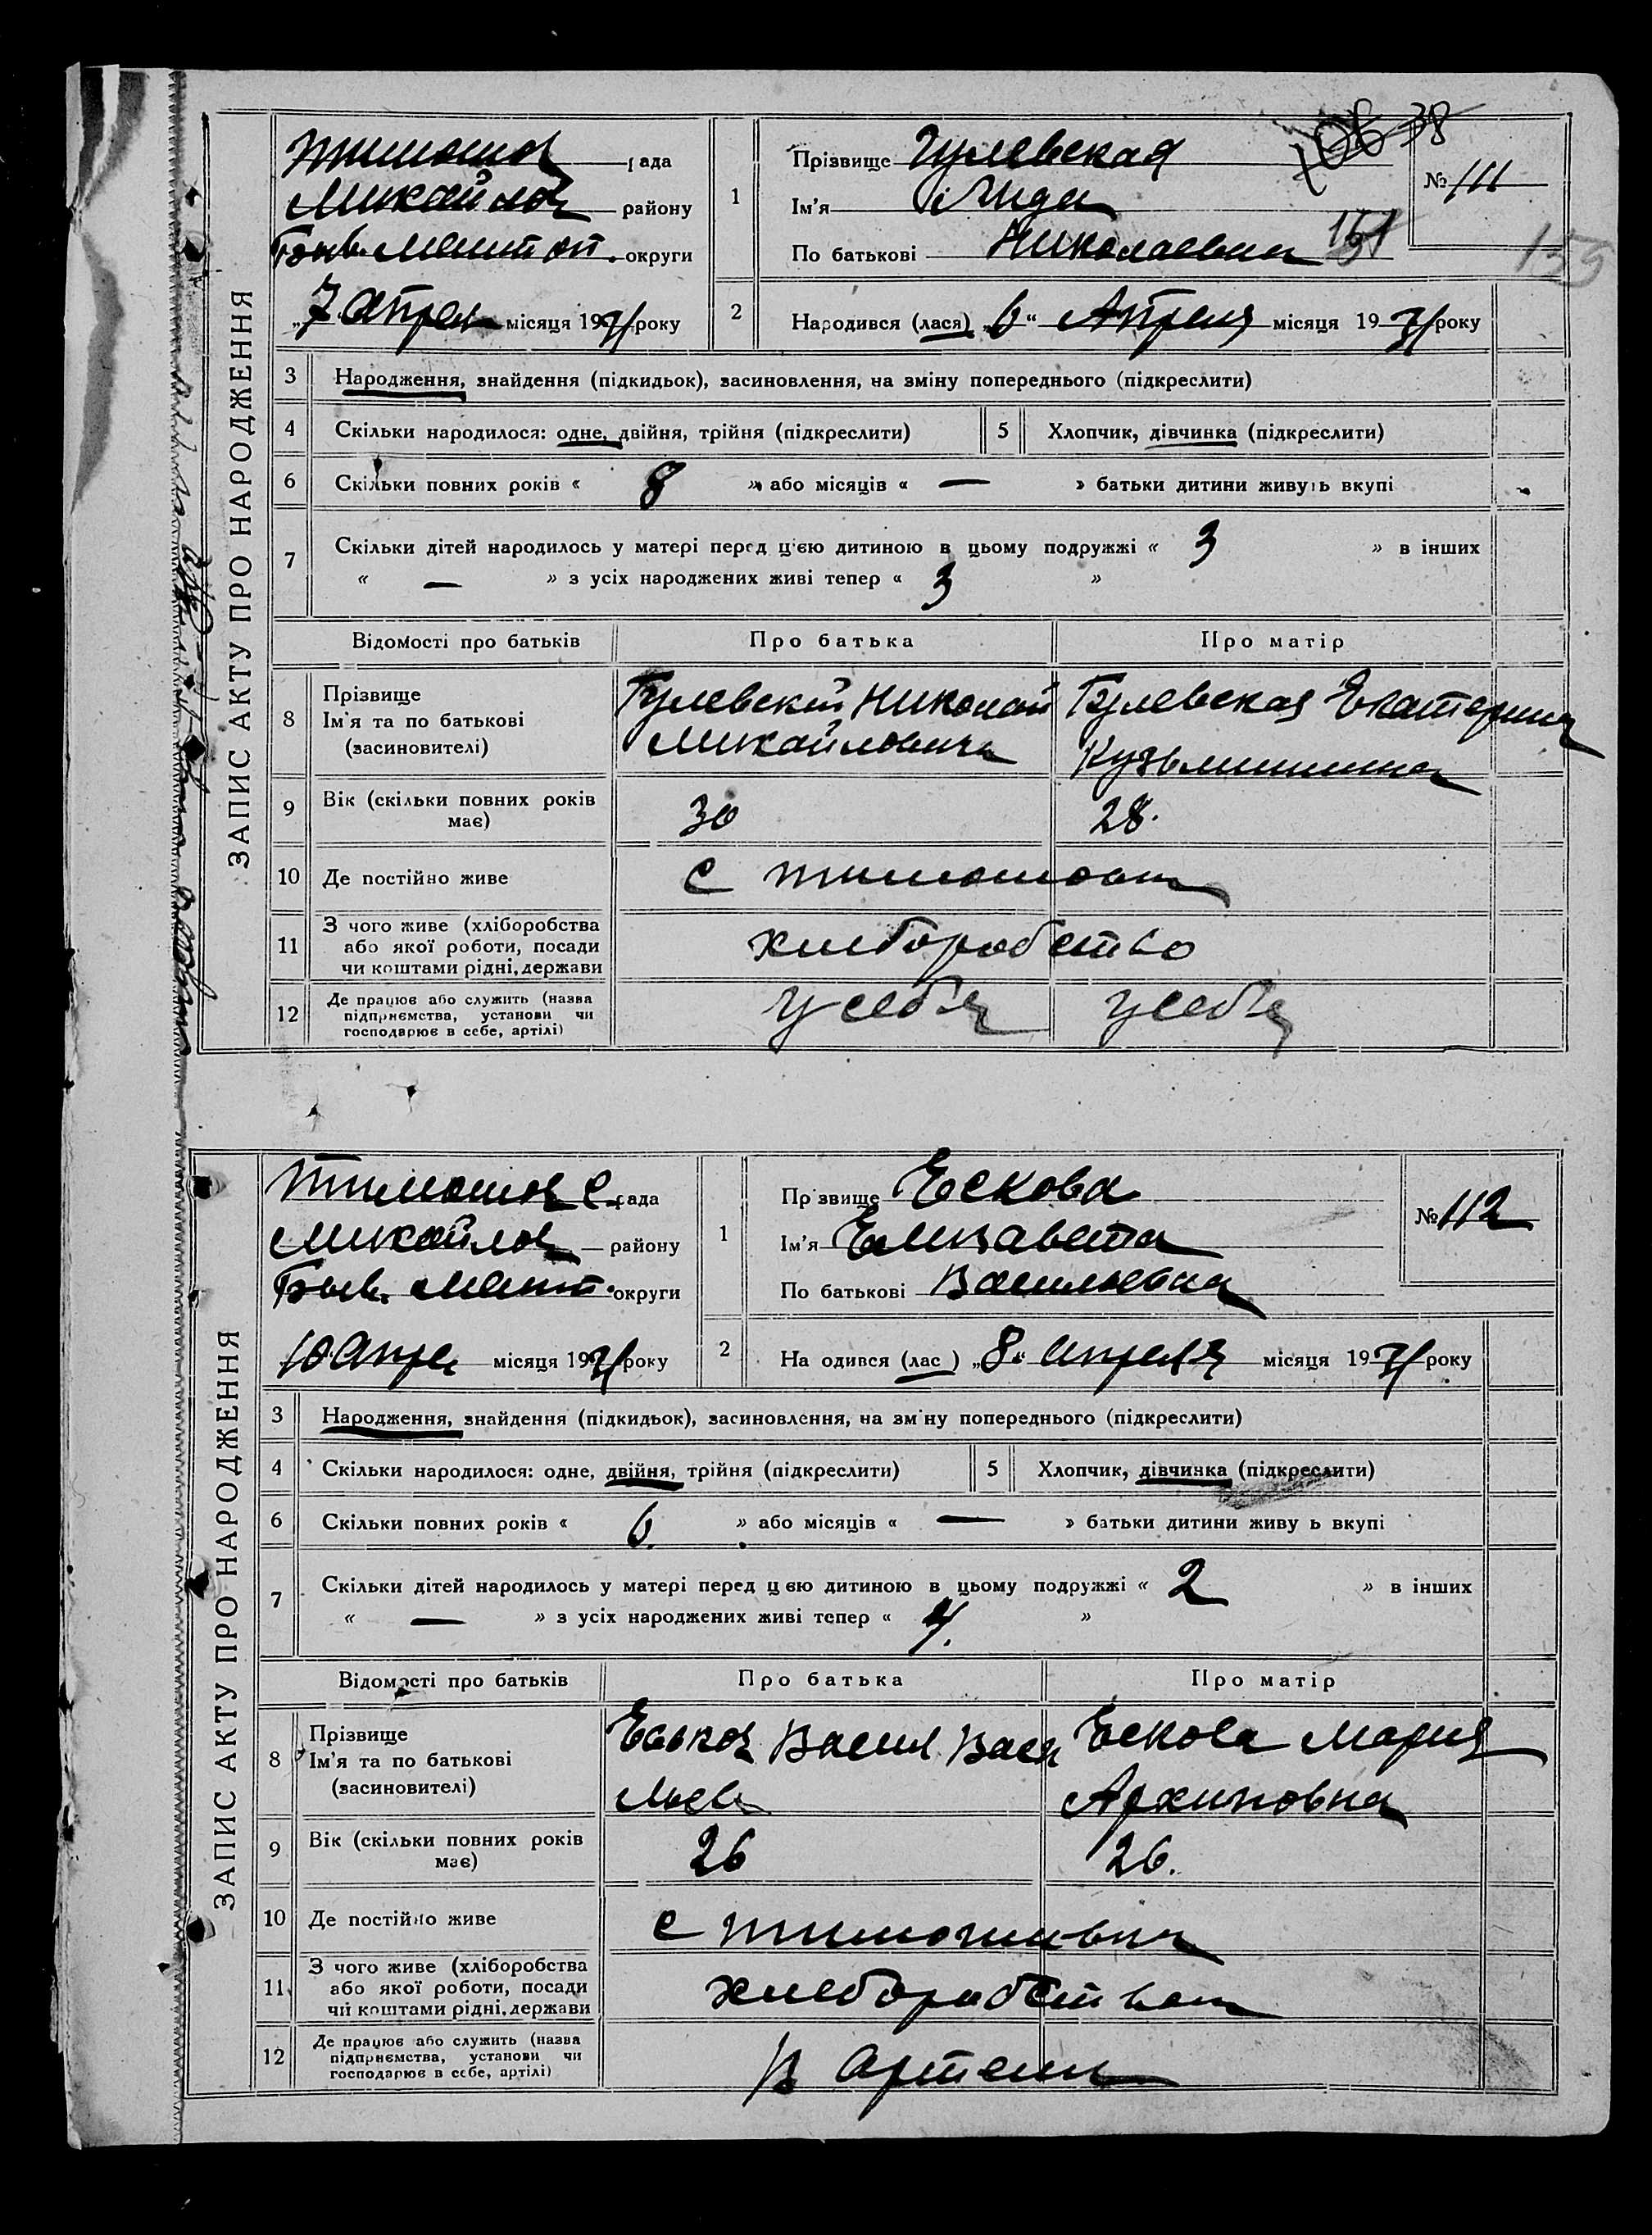 ЗАПИС АКТУ ПРО НАРОДЖЕННЯ
Тимошов рада
Михайлов району
Быв. Мелитоп. округи
„7 Апрел місяця 1931 року
1
Прізвище Гулевская
Ім'я Лида
По батькові Николаевна
№ 111
151
159
2
Народився (лася) „6“ Апреля місяця 1931 року
3 Народження, знайдення (підкидьок), засиновлення, на зміну попереднього (підкреслити)
4 Скільки народилося: одне, двійня, трійня (підкреслити)
5 Хлопчик, дівчинка (підкреслити)
6 Скільки повних років « 8 » або місяців « — » батьки дитини живуть вкупі
7 Скільки дітей народилось у матері перед цією дитиною в цьому подружжі « 3 » в інших
« — » з усіх народжених живі тепер « 3 »
Відомості про батьків Про батька Про матір
8 Прізвище
Ім'я та по батькові
(засновителі)
Гулевский Николай
Михайлович
Гулевская Екатерина
Кузьминична
9 Вік (скільки повних років
має)
30 28.
10 Де постійно живе с Тимошовка
11 З чого живе (хліборобства
або якої роботи, посади
чи коштами рідні, держави
хлеборобство
12 Де працює або служить (назва
підприємства, установи чи
господарює в себе, артілі)
у себя у себя
ЗАПИС АКТУ ПРО НАРОДЖЕННЯ
Тимошов с. рада
Михайлов району
Быв. Мелит. округи
10 Апре місяця 1931 року
1
Пр звище Ескова
Ім'я Елизавета
По батькові Васильевна
№ 112
2
На одився (лас ) „8“ Апреля місяця 1931 року
3 Народження, знайдення (підкидьок), засиновлення, на зм ну попереднього (підкреслити)
4 Скільки народилося: одне, двійня, трійня (підкреслити)
5 Хлопчик, дівчинка (підкреслити)
6 Скільки повних років « 6. » або місяців « — » батьки дитини живу ь вкупі
7 Скільки дітей народилось у матері перед ц єю дитиною в цьому подружжі « 2 » в інших
« — » з усіх народжених живі тепер « 4. »
Відомості про батьків Про батька Про матір
8 Прізвище
Ім'я та по батькові
(засиновителі)
Еськов Васил Васи
льев
Ескова Мария
Архиповна
9 Вік (скільки повних років
має)
26 26.
10 Де постійно живе с Тимошивка
11 З чого живе (хліборобства
або якої роботи, посади
чи коштами рідні, держави
хлеборобством
12 Де працює або служить (назва
підприємства, установи чи
господарює в себе, артілі)
В Артели